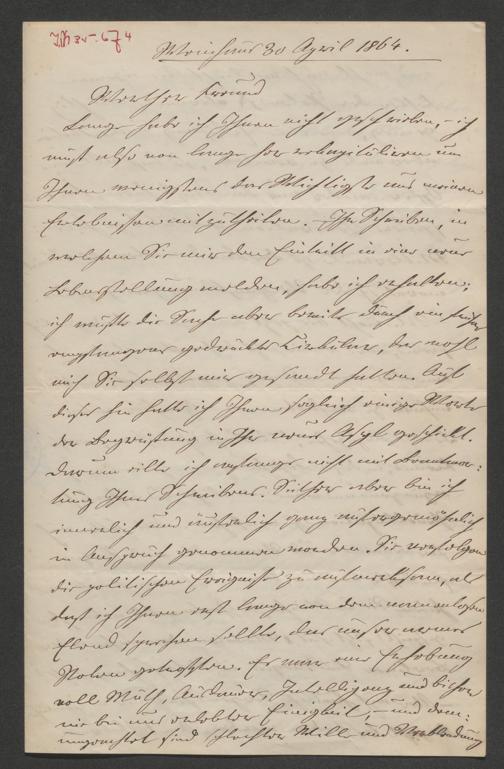 30 April 1864.
Werther Freund
Lange habe ich Ihnen nicht geschrieben, – ich
muß also von lange her rekapituliren um
Ihnen wenigstens das Wichtigste aus meinen
Erlebnissen mitzutheilen. – Ihr Schreiben, in
welchem Sie mir den Eintritt in eine neue
Lebensstellung melden, habe ich erhalten;
ich wußte die Sache aber bereits durch ein früher
empfangenes gedrucktes Circular, das wohl
auch Sie selbst mir gesandt hatten. Auf
dieses hin hatte ich Ihnen sogleich einige Worte
der Begrüßung in Ihr neues Asyl geschickt.
Darum eilte ich anfangs nicht mit Beantwor-
tung Ihres Schreibens. Seither aber bin ich
innerlich und äußerlich ganz außergewöhnlich
in Anspruch genommen worden. Sie verfolgen
die politischen Ereignisse zu aufmerksam, als
daß ich Ihnen erst lange von dem namenlosen
Elend sprechen sollte, das unser armes
Polen getroffen. Es war eine Erhebung
voll Muth, Ausdauer, Intelligenz und bisher
nie bei uns erlebter Einigkeit, – und dem-
ungeachtet sind schlechter Wille und Verblendung